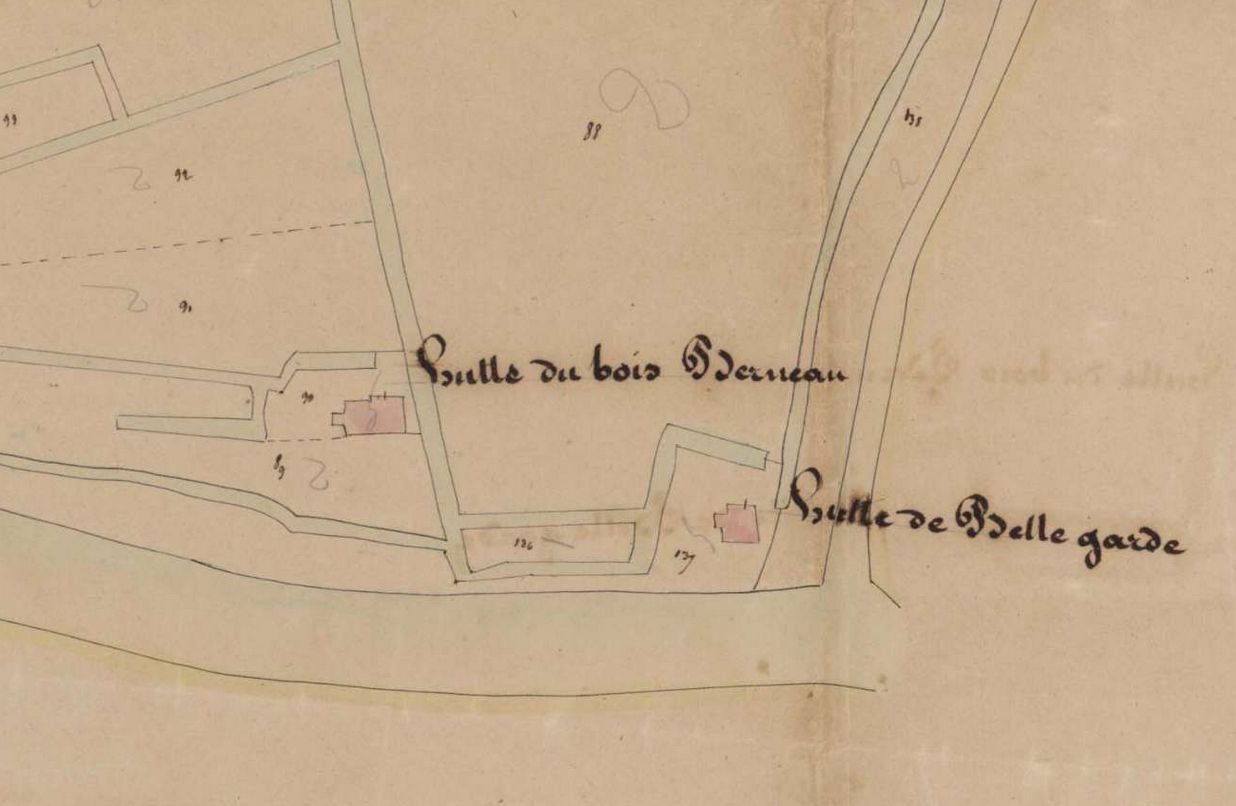 99
88
54
92
91
hutte du bois Berneau
90
89
hutte de Belle garde
136
137